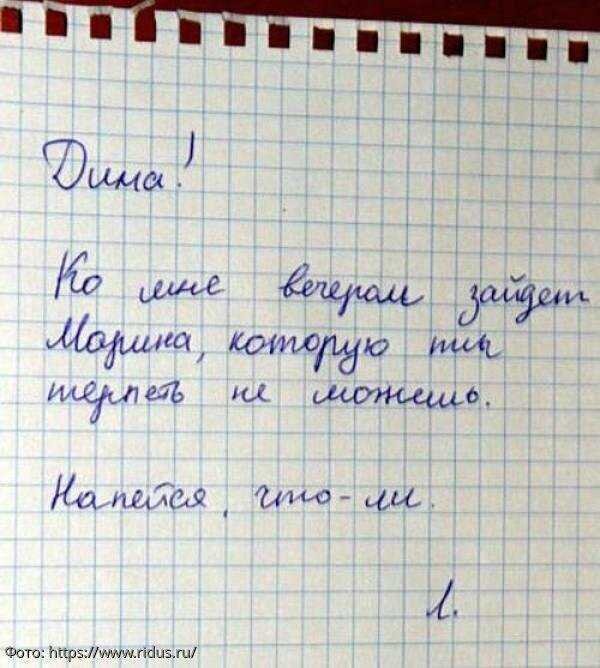 Дима!
Ко мне вечером зайдет
Марина, которую ты
терпеть не можешь.
Напейся, что-ли.
Л.
Фото: https://www.ridus.ru/